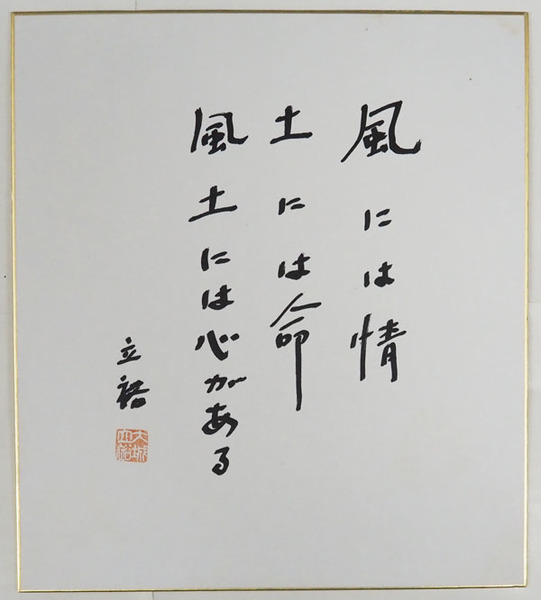 風には情
土には命
風土には心がある
立裕
大城立裕